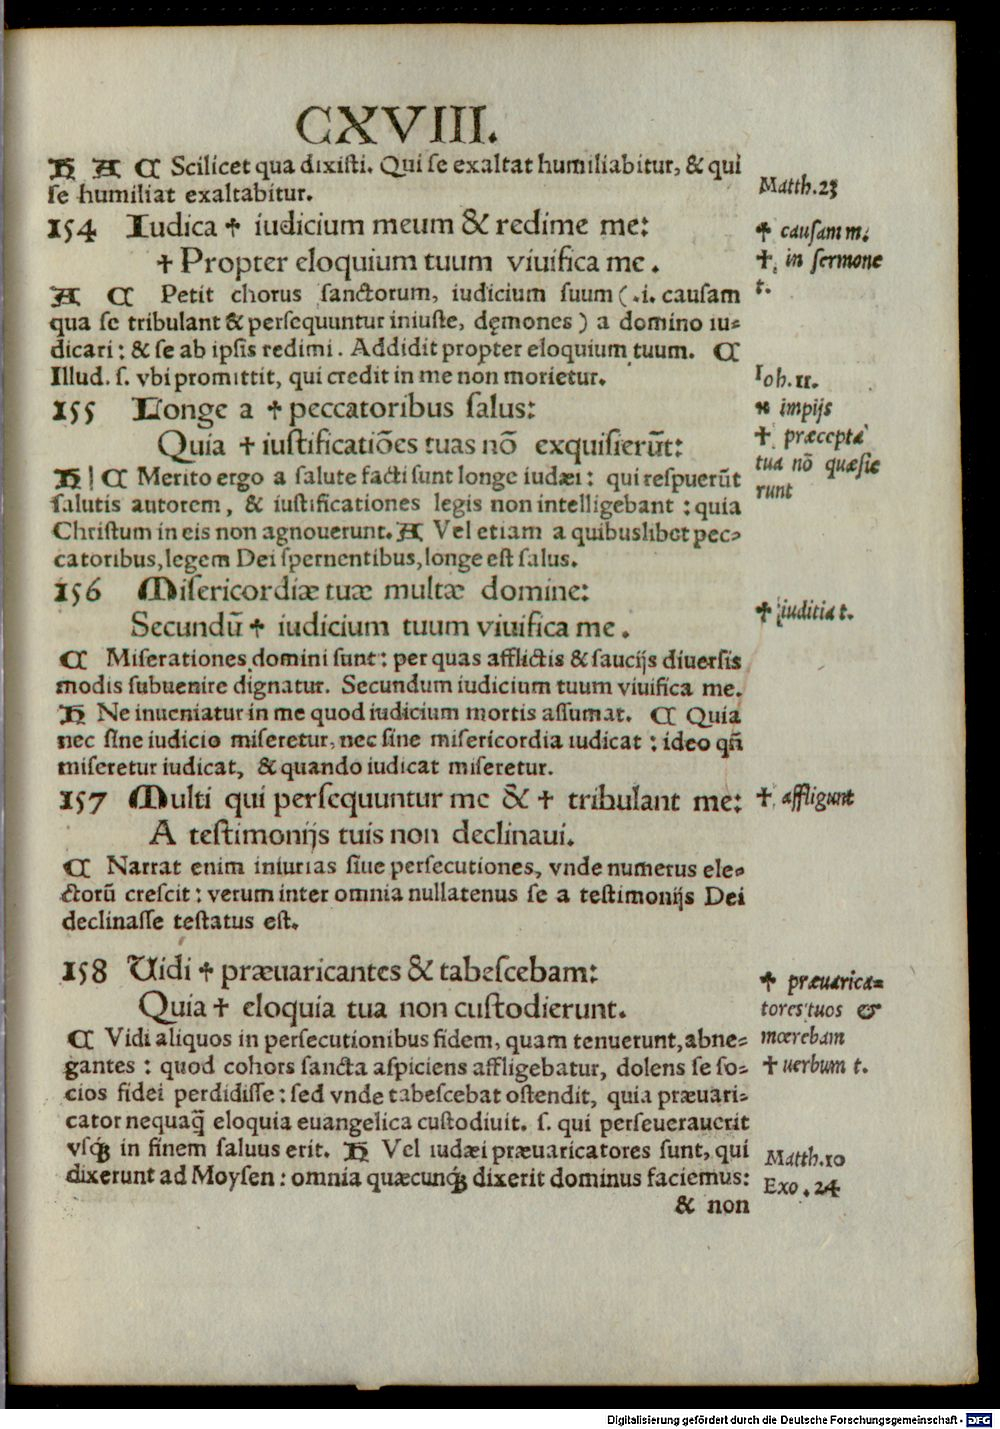 CXVIII.
H A C Scilicet qua dixisti. Qui se exaltat humiliabitur, & qui
se humiliat exaltabitur.
Matth.23
154 Iudica ✝ iudicium meum & redime me:
✝ causam m.
✝ Propter eloquium tuum viuifica me.
✝ in sermone
t.
A C Petit chorus sanctorum, iudicium suum (.i. causam
qua se tribulant & persequuntur iniuste, dęmones) a domino iu=
dicari: & se ab ipsis redimi. Addidit propter eloquium tuum. C
Illud. s. vbi promittit, qui credit in me non morietur.
Ioh.11.
155 Longe a ✝ peccatoribus salus:
✝ impijs
Quia ✝ iustificatiões tuas nõ exquisierũt:
✝ præcepta
tua nõ quæsie
runt
H | C Merito ergo a salute facti sunt longe iudæi: qui respuerũt
salutis autorem, & iustificationes legis non intelligebant: quia
Christum in eis non agnouerunt. A Vel etiam a quibuslibet pec=
catoribus, legem Dei spernentibus, longe est salus.
156 Misericordiæ tuæ multæ domine:
Secundũ ✝ iudicium tuum viuifica me.
✝ iuditia t.
C Miserationes domini sunt: per quas afflictis & saucijs diuersis
modis subuenire dignatur. Secundum iudicium tuum viuifica me.
H Ne inueniatur in me quod iudicium mortis assumat. C Quia
nec sine iudicio miseretur, nec sine misericordia iudicat: ideo qñ
miseretur iudicat, & quando iudicat miseretur.
157 Multi qui persequuntur me & ✝ tribulant me:
✝ affligunt
A testimonijs tuis non declinaui.
C Narrat enim iniurias siue persecutiones, vnde numerus ele=
ctorũ crescit: verum inter omnia nullatenus se a testimonijs Dei
declinasse testatus est.
158 Uidi ✝ præuaricantes & tabescebam:
✝ præuarica=
tores tuos &
mœrebam
Quia ✝ eloquia tua non custodierunt.
✝ uerbum t.
C Vidi aliquos in persecutionibus fidem, quam tenuerunt, abne=
gantes: quod cohors sancta aspiciens affligebatur, dolens se so=
cios fidei perdidisse: sed vnde tabescebat ostendit, quia præuari=
cator nequaq̃ eloquia euangelica custodiuit. s. qui perseuerauerit
vsq́ in finem saluus erit. H Vel iudæi præuaricatores sunt, qui
Matth.10
dixerunt ad Moysen: omnia quæcunq́ dixerit dominus faciemus:
Exo.24
& non
Digitalisierung gefördert durch die Deutsche Forschungsgemeinschaft - DFG